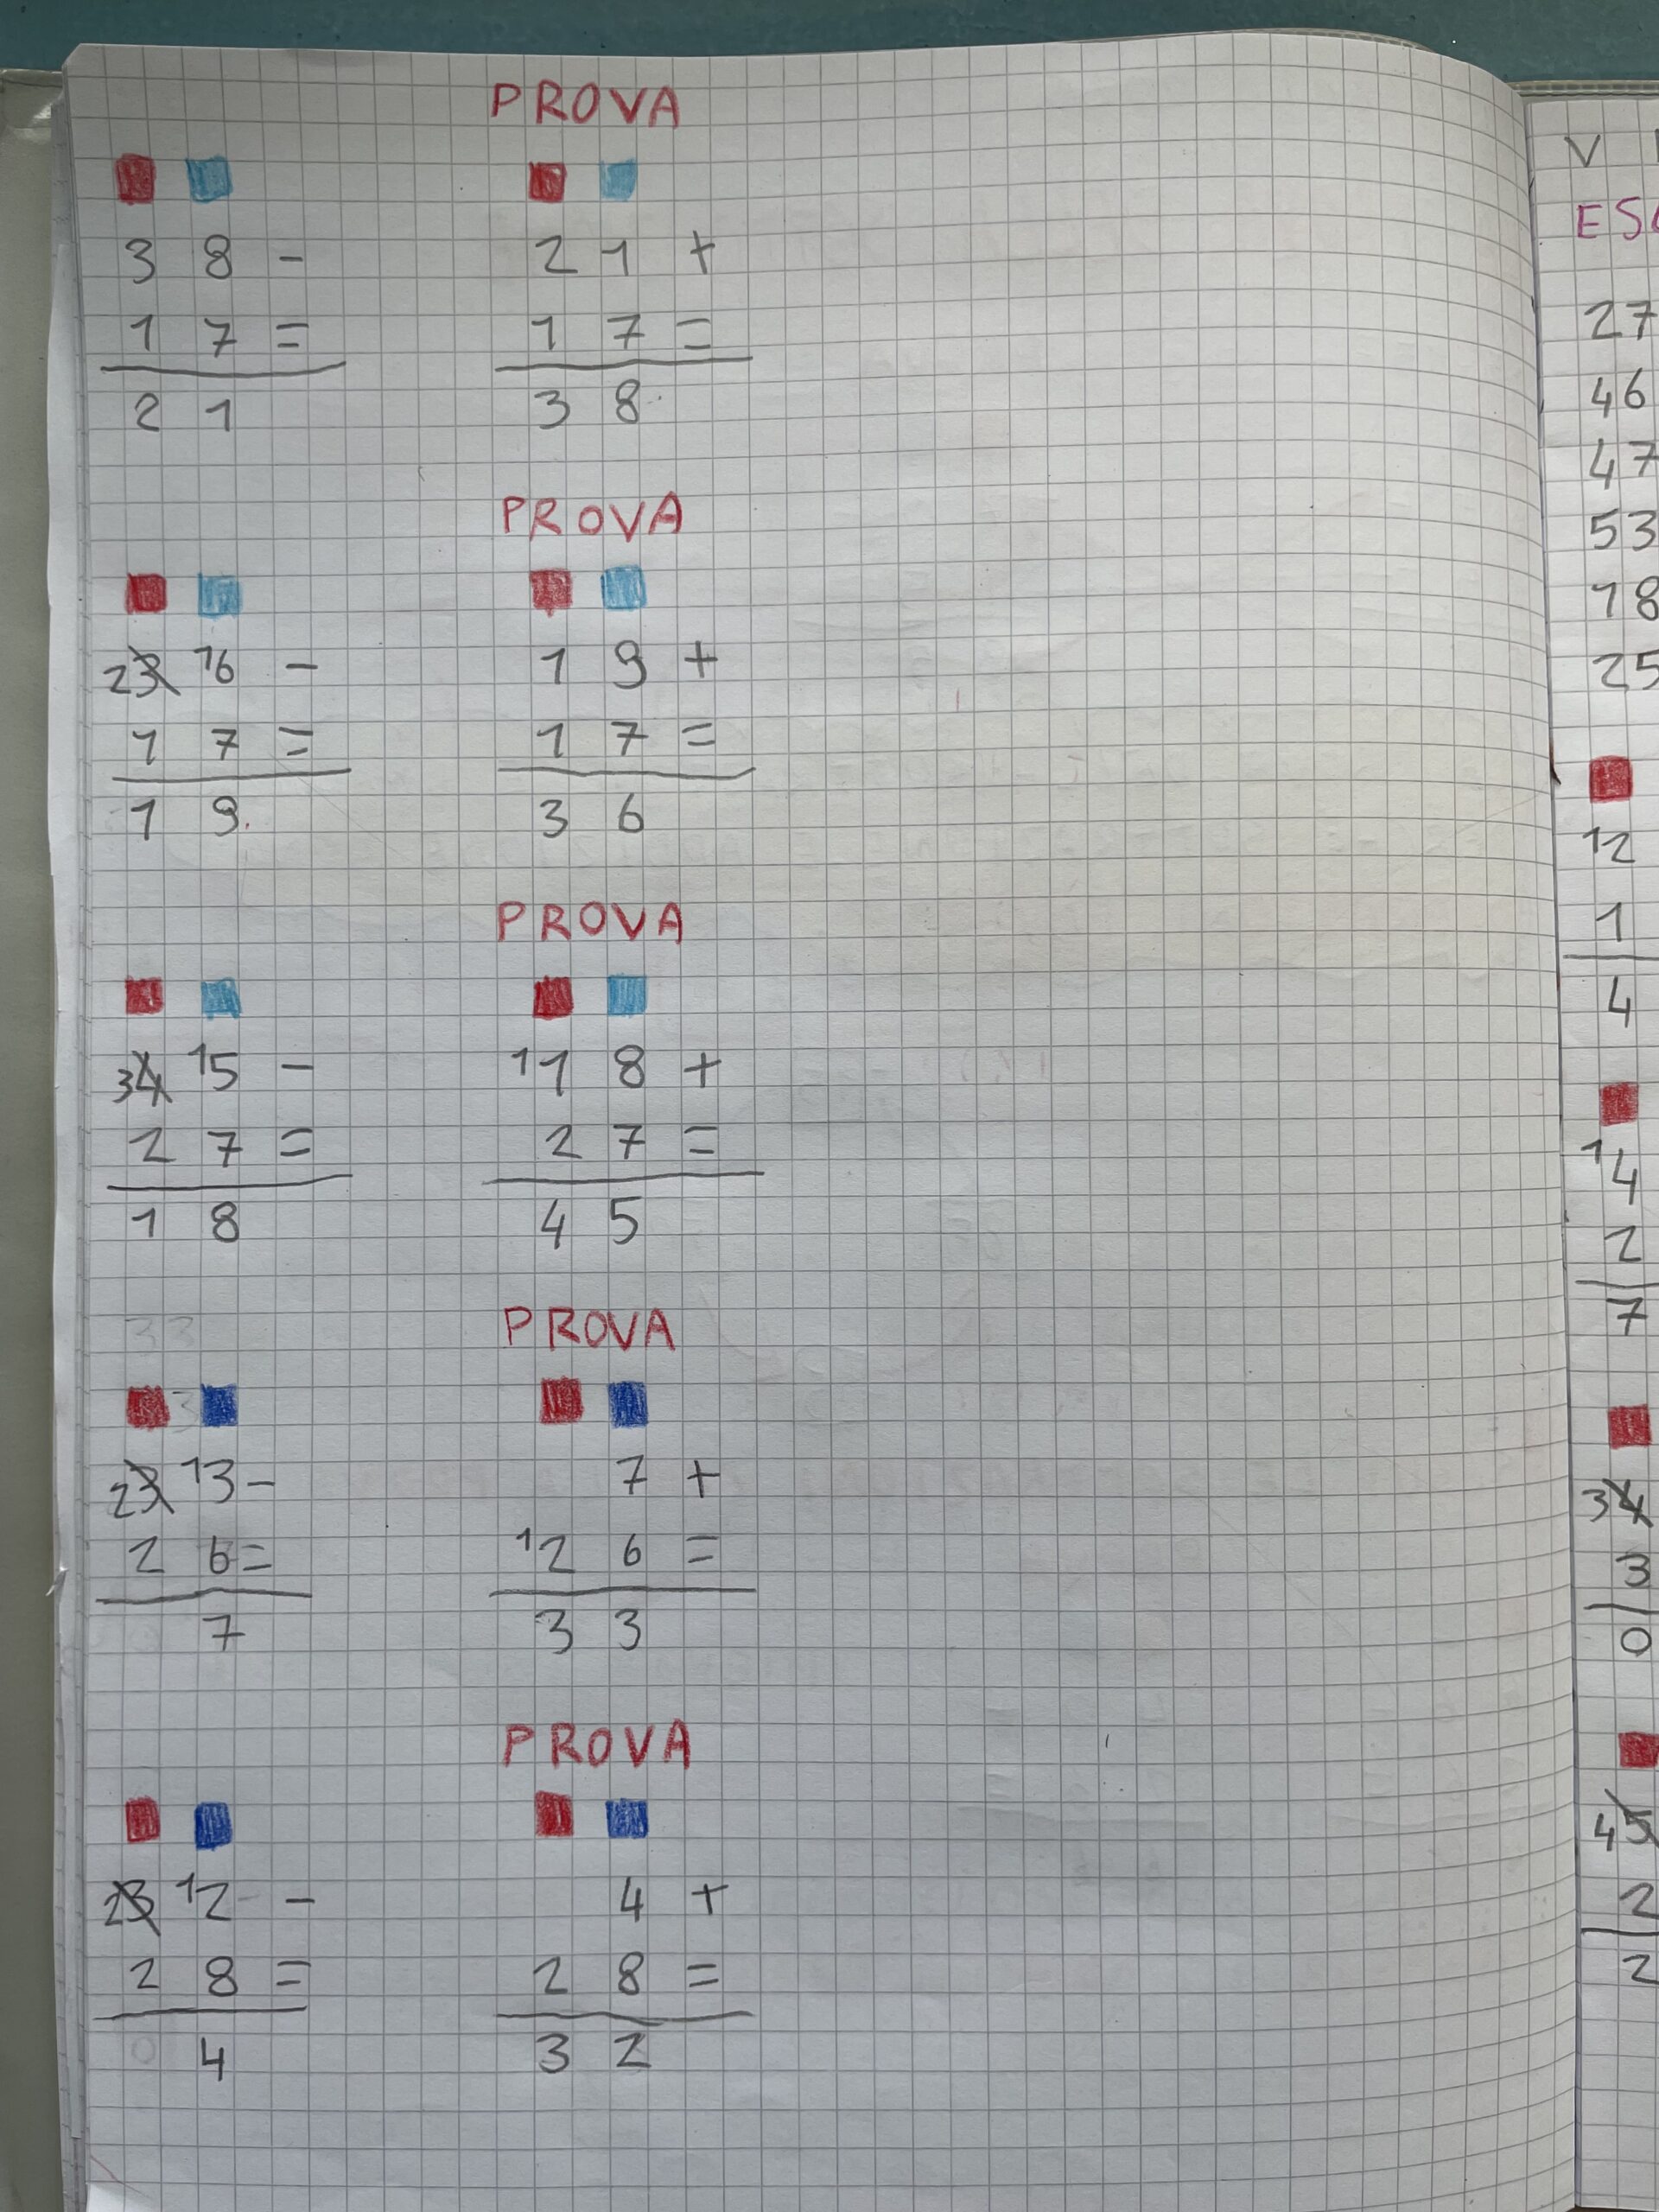 PROVA
3 8 - 2 1 +
1 7 = 1 7 =
2 1 3 8
PROVA
23 16 - 1 9 +
1 7 = 1 7 =
1 9 3 6
PROVA
34 15 - 11 8 +
2 7 = 2 7 =
1 8 4 5
33
PROVA
3
23 13 - 7 +
2 6 = 12 6 =
7 3 3
PROVA
23 12 - 4 +
2 8 = 2 8 =
0 4 3 2
V
ES
27
46
47
53
18
25
12
1
4
14
2
7
34
3
0
45
2
2